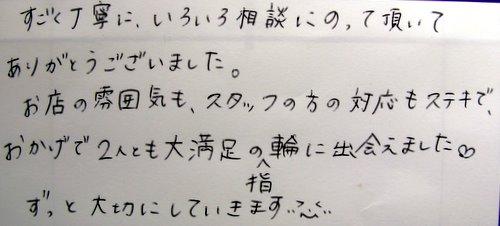 すごく丁寧に、いろいろ相談にのって頂いて
ありがとうございました。
お店の雰囲気も、スタッフの方の対応もステキで、
おかげで2人とも大満足の指輪に出会えました♡
ずっと大切にしていきます